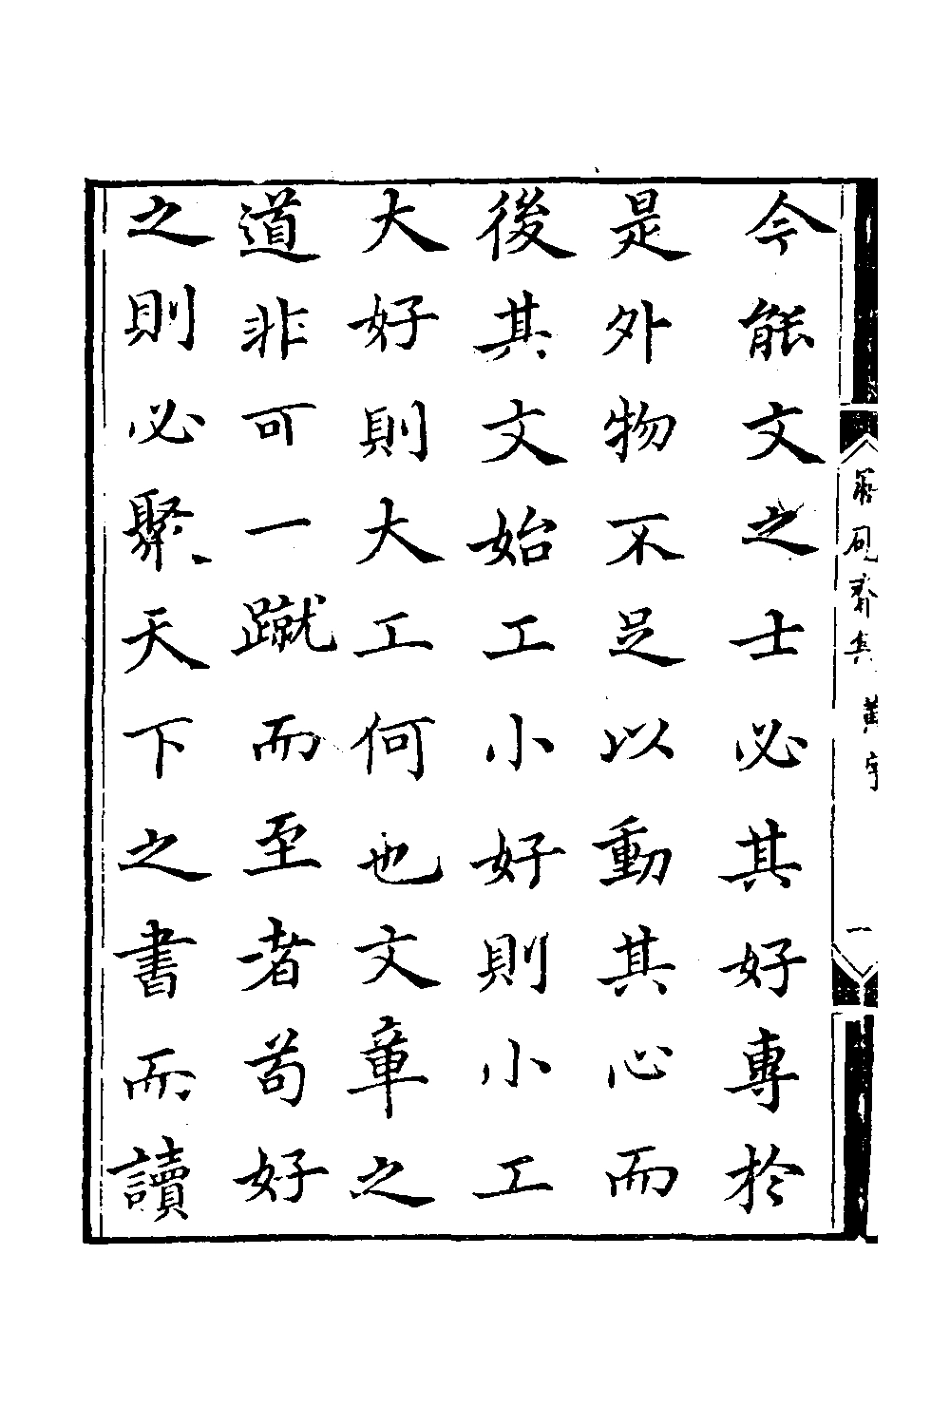 今能文之士必其好專於
是外物不足以動其心而
後其文始工小好則小工
大好則大工何也文章之
道非可一蹴而至者苟好
之則必聚天下之書而讀
硯齋集
黃序
一